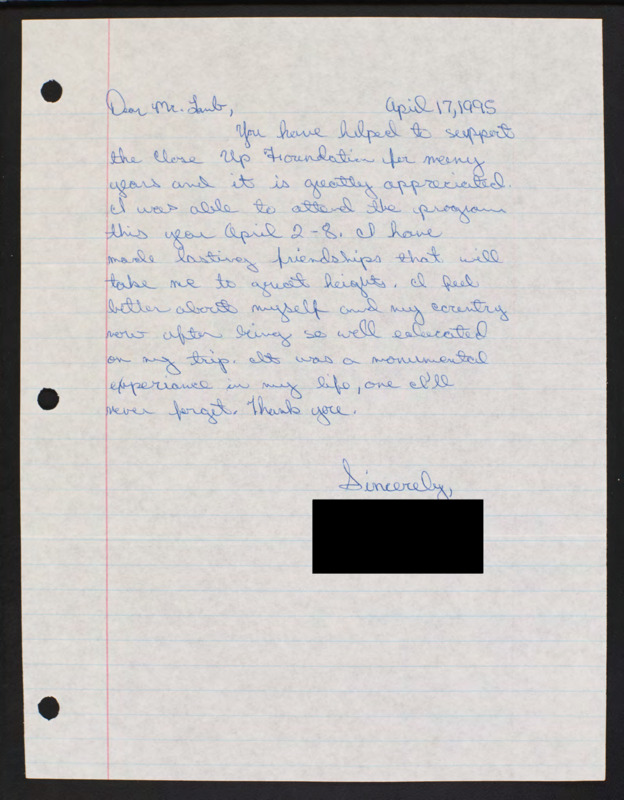 Dear Mr. Lamb, April 17, 1995
You have helped to support
the Close Up Foundation for many
years and it is greatly appreciated.
I was able to attend the program
this year April 2-8. I have
made lasting friendships that will
take me to great heights. I feel
better about myself and my country
now after being so well educated
on my trip. It was a monumental
experience in my life, one I'll
never forget. Thank you.
Sincerely,